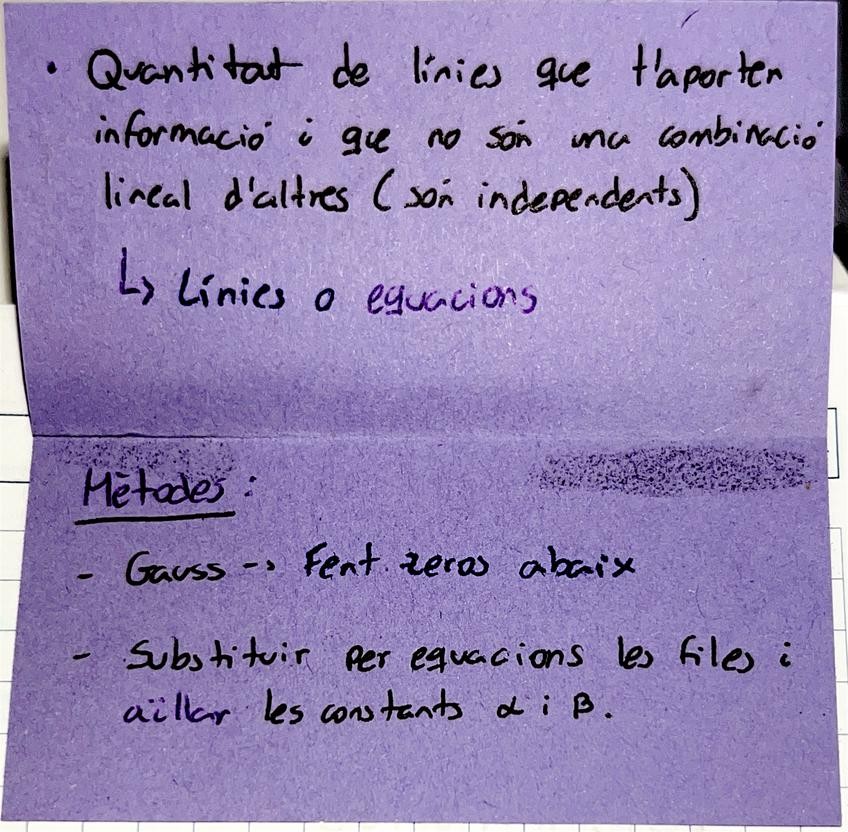 • Quantitat de línies que t'aporten
informació i que no són una combinació
lineal d'altres (són independents)
↳ Línies o equacions
Mètodes:
- Gauss -> Fent zeros abaix
- Substituir per equacions les files i
aïllar les constants α i β.